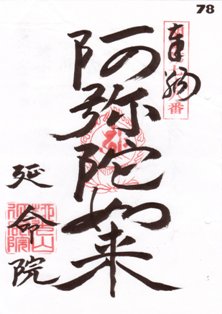 78
奉納
阿弥陀如来
延命院